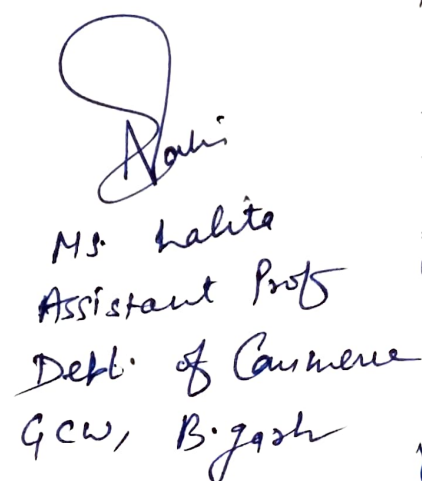 Ms. Lalita
Assistant Prof
Deptt. of Commerce
GCW, B.garh